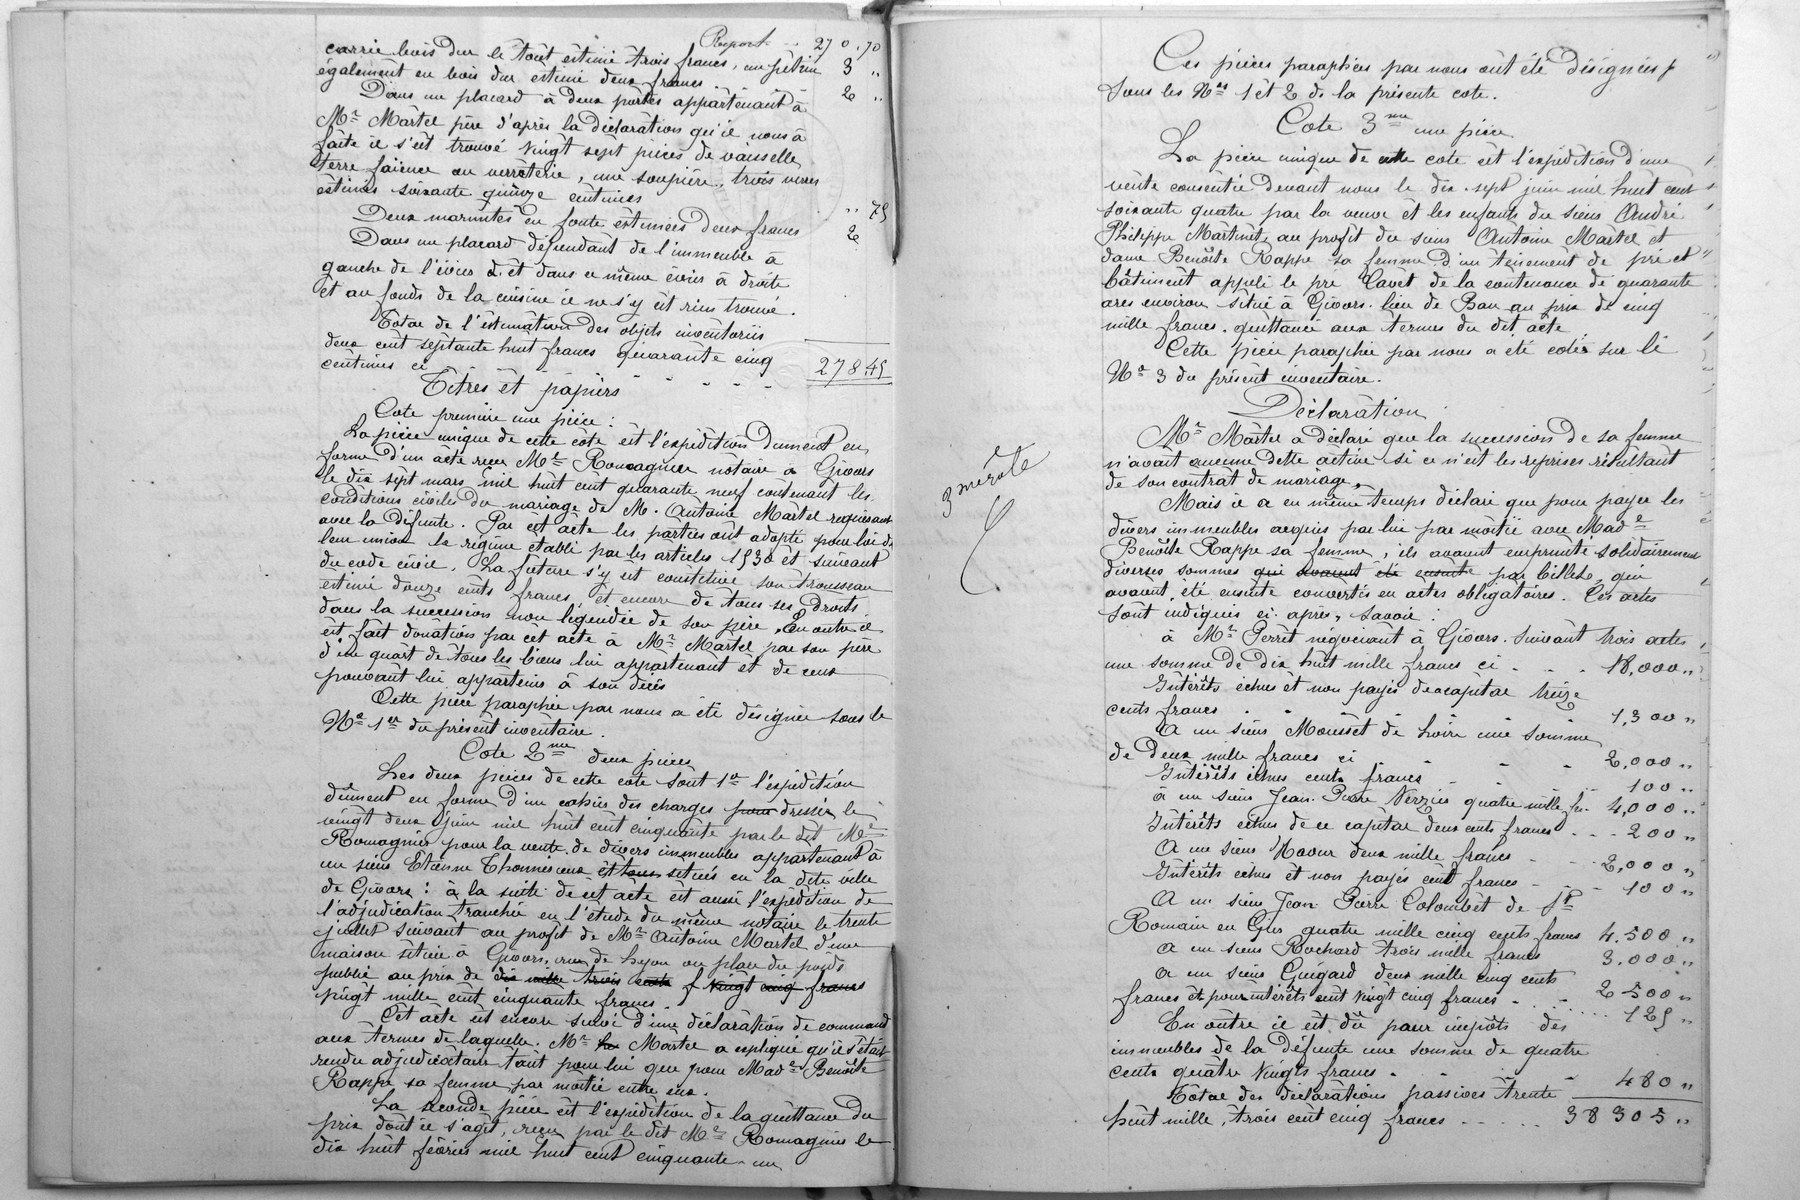 Report - - 270,70
carrée bois dur le tout estimé trois francs, un pétrin 3 "
également en bois dur estimé deux francs 2 "
Dans un placard à deux portes appartenant à
Mr Martel père d'après la déclaration qu'il nous a
faite il s'est trouvé vingt sept pièces de vaisselle
terre faïence ou verroterie, une soupière, trois verres
estimés soixante quinze centimes " 75
Deux marmites en fonte estimées deux francs 2
Dans un placard dépendant de l'immeuble à
gauche de l'évier et dans ce même évier à droite
et au fonds de la cuisine il ne s'y est rien trouvé.
Total de l'estimation des objets inventoriés
deux cent septante huit francs quarante cinq
centimes ci - - - - - 278 45
Titres et papiers
Cote première une pièce :
La pièce unique de cette cote est l'expédition dûment en
forme d'un acte reçu Me Romagnier notaire à Givors
le dix sept mars mil huit cent quarante neuf contenant les
conditions civiles du mariage de M. Antoine Martel requérant
avec la défunte. Par cet acte les parties ont adopté pour loi de
leur union le régime établi par les articles 1530 et suivant
du code civil. La future s'y est constitué son trousseau
estimé douze cents francs, et encore de tous ses droits
dans la succession non liquidée de son père. En outre il
est fait donation par cet acte à Mr Martel par son père
d'un quart de tous les biens lui appartenant et de ceux
pouvant lui appartenir à son décès
Cette pièce paraphée par nous a été désignée sous le
No 1er du présent inventaire.
Cote 2me deux pièces
Les deux pièces de cette cote sont 1o l'expédition
dûment en forme d'un cahier des charges pour dressé le
vingt deux juin mil huit cent cinquante par le dit Me
Romagnier pour la vente de divers immeubles appartenant à
un sieur Etienne Thonnerieux et tous situés en la dite ville
de Givors : à la suite de cet acte est aussi l'expédition de
l'adjudication tranchée en l'étude du même notaire le trente
juillet suivant au profit de Mr Antoine Martel d'une
maison située à Givors, rue de Lyon ou place du poids
public au prix de dix mille trois cents f vingt cinq francs
vingt mille cent cinquante francs.
Cet acte est encore suivi d'une déclaration de command
aux termes de laquelle Mr Martel a expliqué qu'il s'était
rendu adjudicataire tant pour lui que pour Made Benoite
Rappe sa femme par moitié entre eux.
La seconde pièce est l'expédition de la quittance du
prix dont il s'agit, reçue par le dit Me Romagnier le
dix huit février mil huit cent cinquante un
3me rôle
Ces pièces paraphées par nous ont été désignées
sous les Nos 1 et 2 de la présente cote.
Cote 3me une pièce
La pièce unique de cette cote est l'expédition d'une
vente consentie devant nous le dix sept juin mil huit cent
soixante quatre par la veuve et les enfants du sieur André
Philippe Martinet, au profit du sieur Antoine Martel et
dame Benoite Rappe sa femme d'un tènement de pré et
bâtiment appelé le pré Cavet de la contenance de quarante
ares environ situé à Givors lieu de Ban au prix de cinq
mille francs, quittancé aux termes du dit acte.
Cette pièce paraphée par nous a été cotée sur le
No 3 du présent inventaire.
Déclaration
Mr Martel a déclaré que la succession de sa femme
n'avait aucune dette active si ce n'est les reprises résultant
de son contrat de mariage.
Mais il a en même temps déclaré que pour payer les
divers immeubles acquis par lui par moitié avec Made
Benoite Rappe sa femme, ils avaient emprunté solidairement
diverses sommes qui avaient été ensuite par billets, qui
avaient été ensuite convertis en actes obligatoires. Ces actes
sont indiqués ci après, savoir :
à Mr Perret négociant à Givors suivant trois actes
une somme de dix huit mille francs ci - - - 18,000 "
Intérêts échus et non payés de ce capital treize
cents francs - - - 1,300 "
A un sieur Mousset de Loire une somme
de deux mille francs ci - - - 2,000 "
Intérêts échus cents francs - - - 100 "
à un sieur Jean Pierre Verzier quatre mille fr. 4,000 "
Intérêts échus de ce capital deux cents francs - - - 200 "
A un sieur Navour deux mille francs - - - 2,000 "
Intérêts échus et non payés cent francs - - - 100 "
A un sieur Jean Pierre Colombet de St
Romain en Gier quatre mille cinq cents francs 4,500 "
à un sieur Rochard trois mille francs 3,000 "
à un sieur Guigard deux mille cinq cents
francs et pour intérêts cent vingt cinq francs - - - 2 500 "
125 "
En outre il est dû pour impôts des
immeubles de la défunte une somme de quatre
cents quatre vingts francs - - - 480 "
Total des déclarations passives trente
huit mille, trois cent cinq francs - - - - - 38 305 "